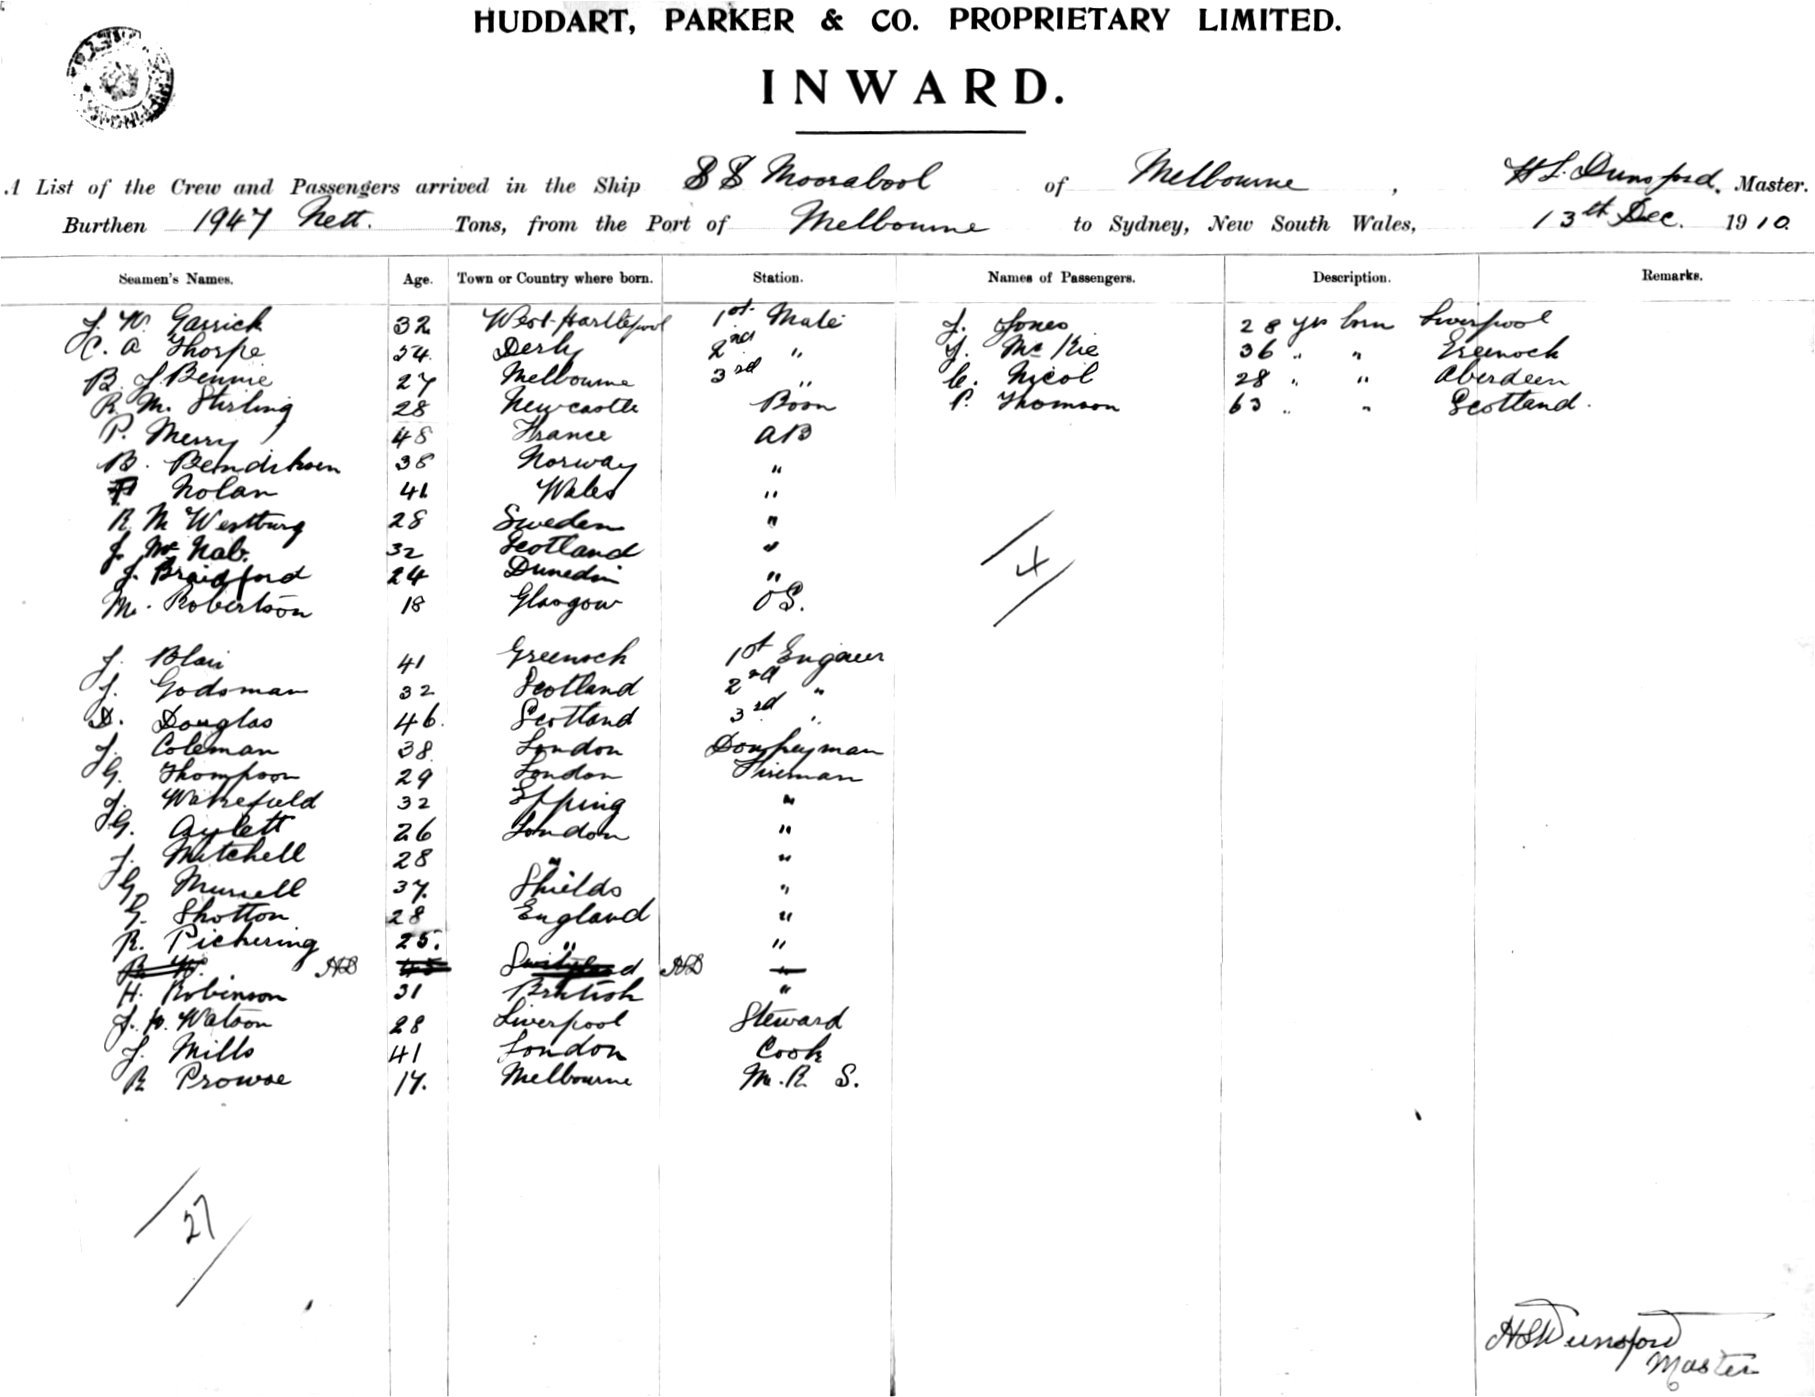 HUDDART, PARKER & CO. PROPRIETARY LIMITED.
INWARD.
A List of the Crew and Passengers arrived in the Ship SS Moorabool of Melbourne, H L Dunsford. Master.
Burthen 1947 Nett. Tons, from the Port of Melbourne to Sydney, New South Wales, 13th Dec. 1910.
Seamen's Names. Age. Town or Country where born. Station. Names of Passengers. Description. Remarks.
J. W. Garrick 32 West Hartlepool 1st Mate J. Jones 28 yrs born Liverpool
C. A Thorpe 54. Derby 2nd " J. McKie 36 " " Greenock
B. J Bennie 27 Melbourne 3rd " C. Nicol 28 " " Aberdeen
R. M. Stirling 28 Newcastle Bosn P. Thomson 63 " " Scotland.
P. Merry 48 France AB
B. Bendiksen 38 Norway "
Nolan 41 Wales "
R. M Westburg 28 Sweden "
J. McNab. 32 Scotland "
J. Braidford 24 Dunedin "
M. Robertson 18 Glasgow OS.
4
J. Blair 41 Greenock 1st Engineer
J. Godsman 32 Scotland 2nd "
D. Douglas 46. Scotland 3rd "
J. Coleman 38 London Donkeyman
G. Thompson 29 London Fireman
J. Wakefield 32 Epping "
G. Aylett 26 London "
J. Mitchell 28 " "
G. Murrell 37. Shields "
G. Shotton 28 England "
R. Pickering 25. " "
HD 45 Switzland HD
H. Robinson 31 British "
J. P. Watson 28 Liverpool Steward
J. Mills 41 London Cook
R Prowse 17. Melbourne M. R. S.
27
HLDunsford
Master